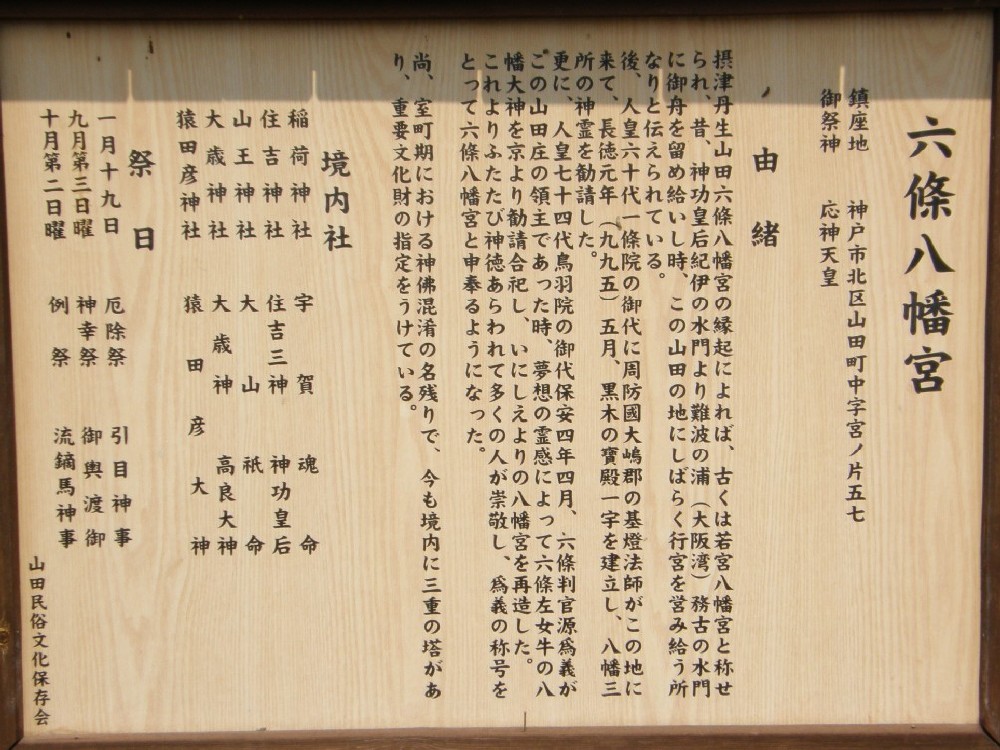 六條八幡宮
鎮座地　神戸市北区山田町中字宮ノ片五七
御祭神　応神天皇
由緒
摂津丹生山田六條八幡宮の縁起によれば、古くは若宮八幡宮と称せ
られ、昔、神功皇后紀伊の水門より難波の浦（大阪湾）務古の水門
に御舟を留め給いし時、この山田の地にしばらく行宮を営み給う所
なりと伝えられている。
後、人皇六十代一條院の御代に周防國大嶋郡の基燈法師がこの地に
来て、長徳元年（九九五）五月、黒木の寳殿一宇を建立し、八幡三
所の神霊を勧請した。
更に、人皇七十四代鳥羽院の御代保安四年四月、六條判官源爲義が
この山田庄の領主であった時、夢想の霊感によって六條左女牛の八
幡大神を京より勧請合祀し、いにしえよりの八幡宮を再造した。
これよりふたたび神徳あらわれて多くの人が崇敬し、爲義の称号を
とって六條八幡宮と申奉るようになった。
尚、室町期における神佛混淆の名残りで、今も境内に三重の塔があ
り、重要文化財の指定をうけている。
境内社
稲荷神社　宇賀魂命
住吉神社　住吉三神　神功皇后
山王神社　大山祇命
大歳神社　大歳神　高良大神
猿田彦神社　猿田彦大神
祭日
一月十九日　厄除祭　引目神事
九月第三日曜　神幸祭　御輿渡御
十月第二日曜　例祭　流鏑馬神事
山田民俗文化保存会